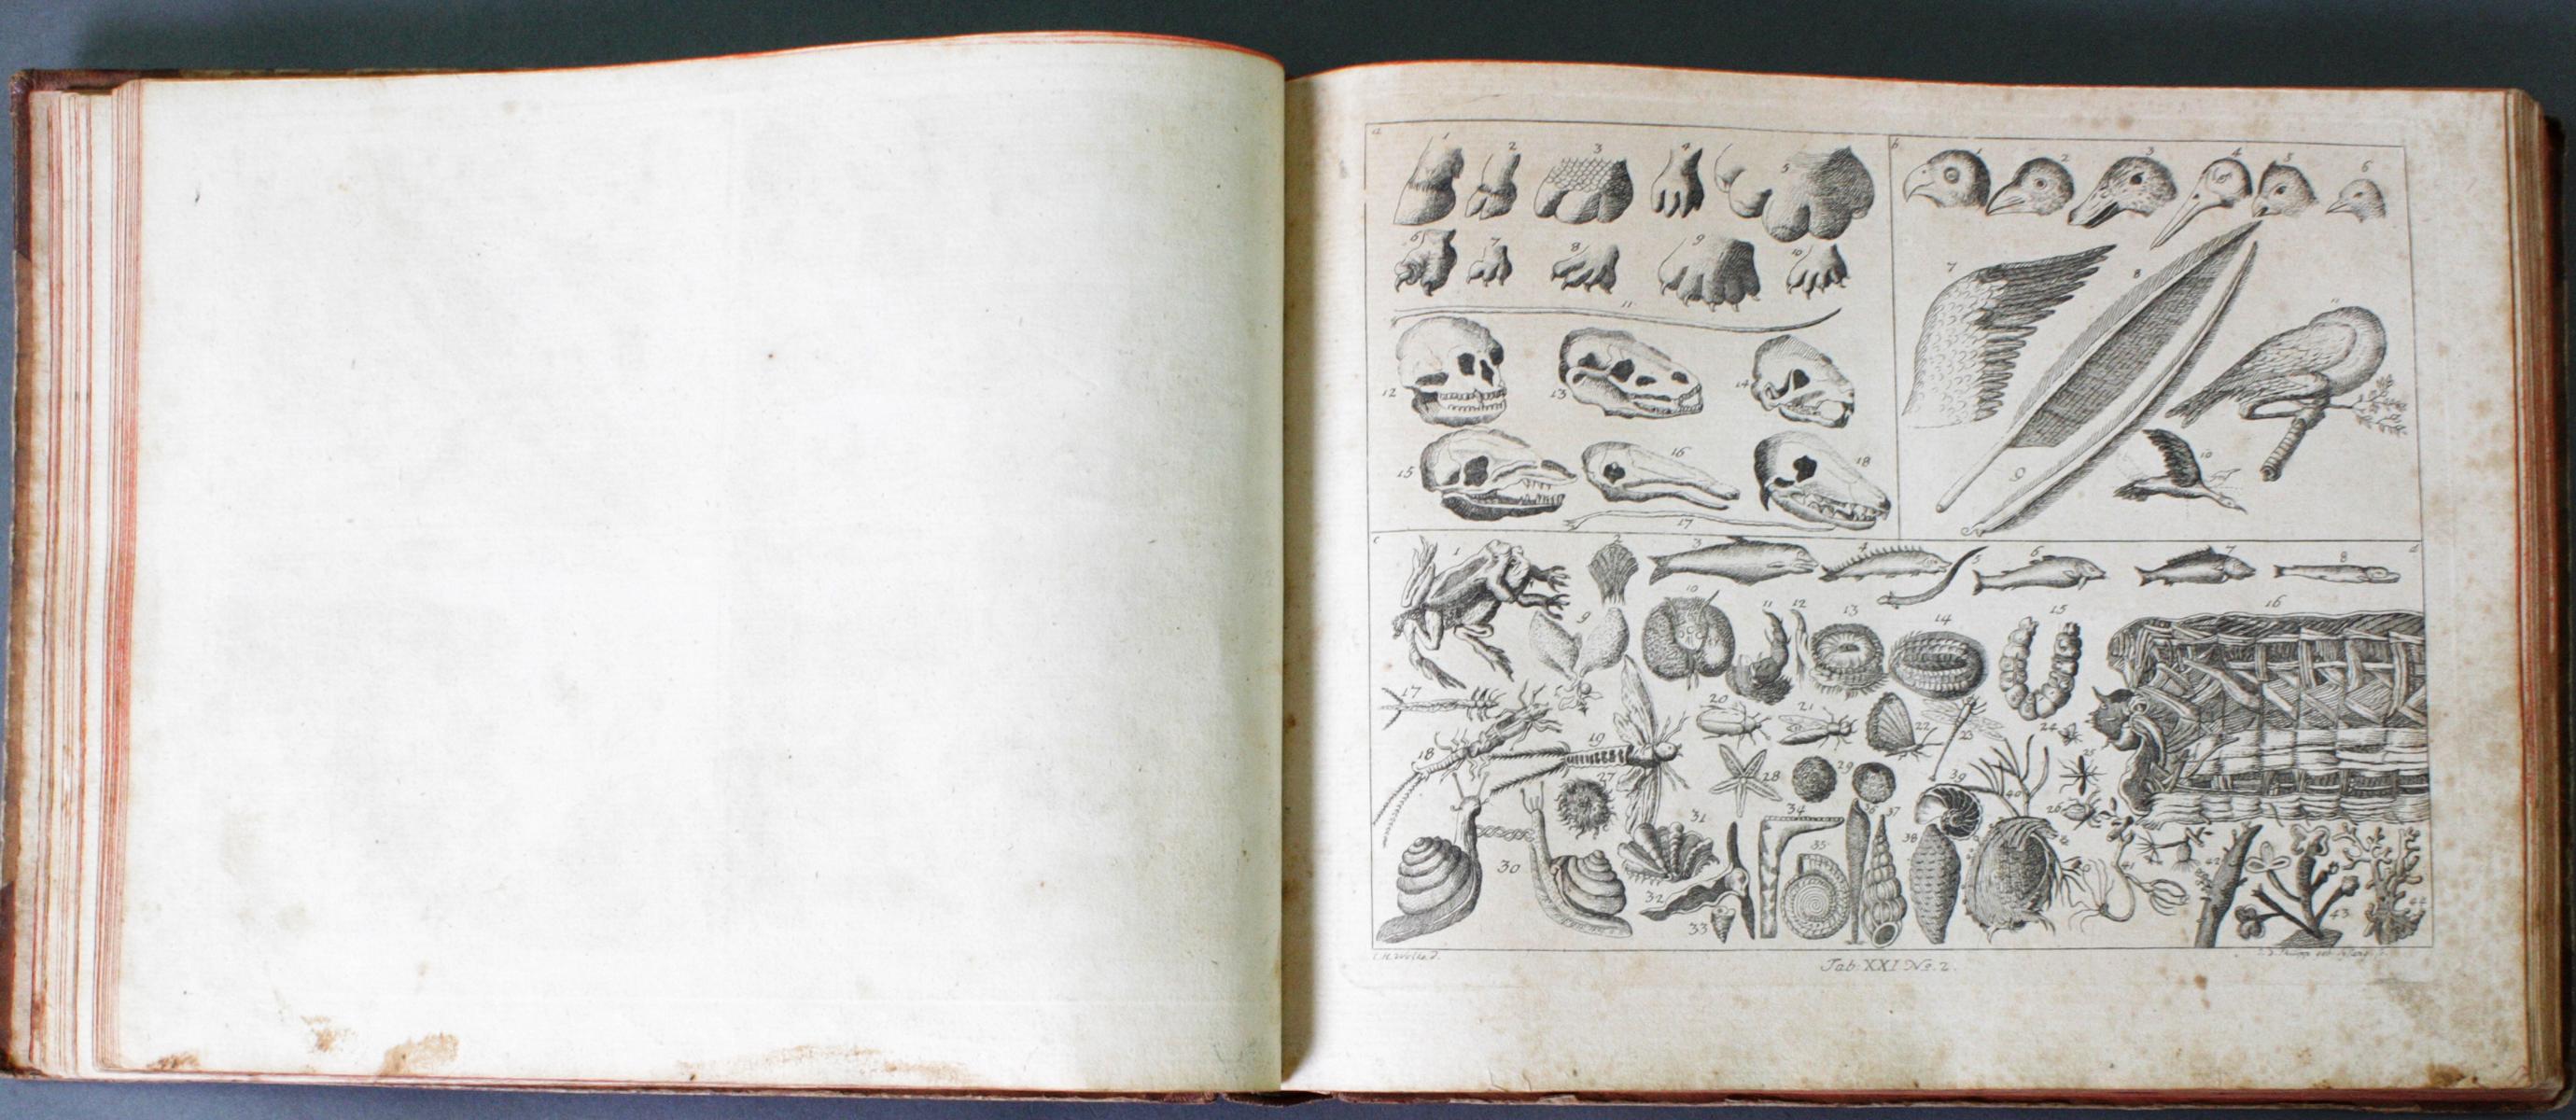 a
1 2 3 4 5
6 7 8 9 10
11
12 13 14
15 16 18
17
b
1 2 3 4 5 6
7 8 11
9 10
c d
1 2 3 4 5 6 7 8
9 10 11 12 13 14 15 16
17 20 21 22 23 24
18 19 25
27 28 29 39 40 26
34 36 37
30 31 35 38 41 42
32 33 43 44
Tab. XXI No. 2.